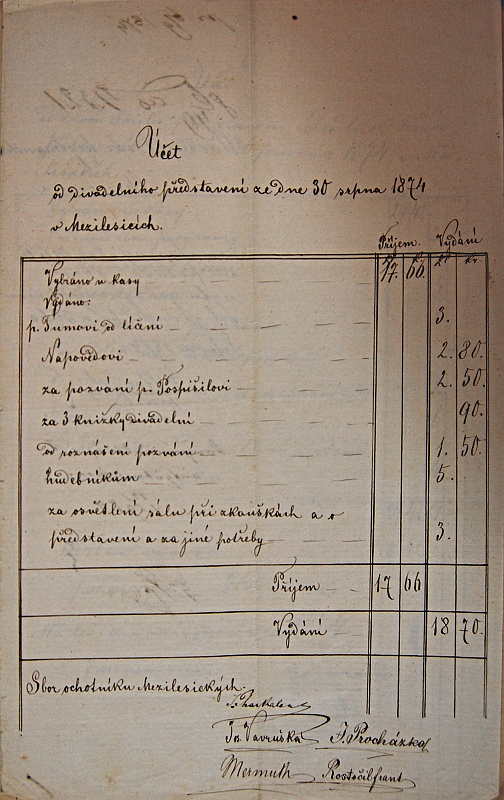 Účet
od divadelního představení ze dne 30 srpna 1874
v Mezilesicích.
Příjem. Vydání
zl kr zl kr
Vybráno u kasy 17. 66.
Vydáno:
p. Tumovi od líčení 3.
Napovědovi 2. 80.
za pozvání p. Pospíšilovi 2. 50.
za 3 knížky divadelní 90.
od roznášení pozvání 1. 50.
hudebníkům 5.
za osvětlení sálu při zkouškách a
představení a za jiné potřeby 3.
Příjem 17 66
Vydání 18 70.
Sbor ochotníku Mezilesických.
Vavruška J. Procházka
Mermuth Rostočil frant